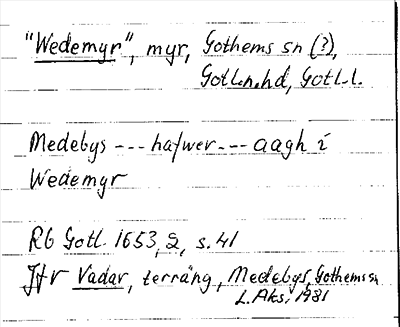 "Wedemyr", myr, Gothems sn (?),
Gotl.n.hd, Gotl.l.
Medebys --- hafwer --- aagh i
Wedemyr
RG Gotl. 1653, 2, s. 41
Jfr Vadar, terräng, Medebys, Gothems sn
L. Aks. 1981